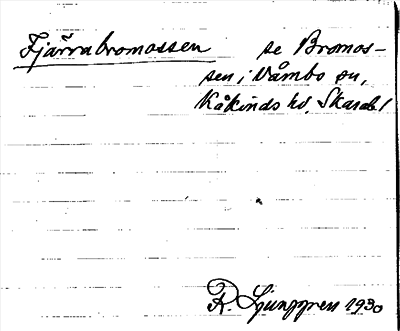 Fjärrabromossen se Bromos-
sen i Våmbo sn,
Kåkinds hd, Skarab.l
R. Ljunggren 1930